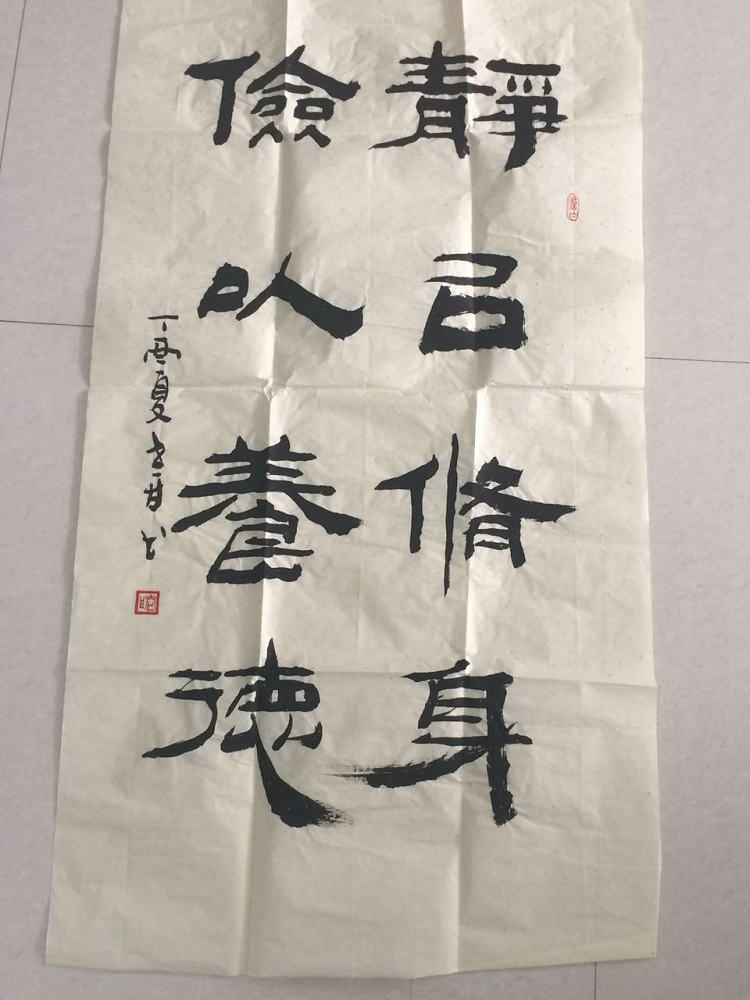 靜㠯脩身
儉以養德
丁酉夏